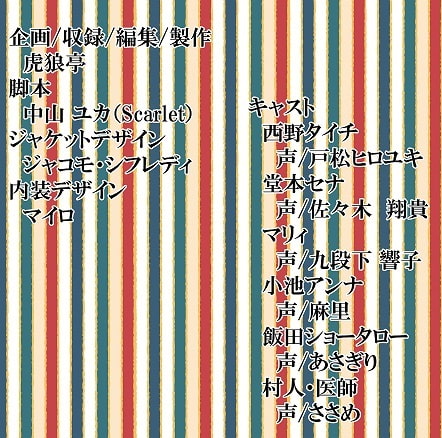 企画/収録/編集/製作
虎狼亭
脚本
中山 ユカ(Scarlet)
ジャケットデザイン
ジャコモ・シフレディ
内装デザイン
マイロ
キャスト
西野タイチ
声/戸松ヒロユキ
堂本セナ
声/佐々木 翔貴
マリィ
声/九段下 響子
小池アンナ
声/麻里
飯田ショータロー
声/あさぎり
村人・医師
声/ささめ